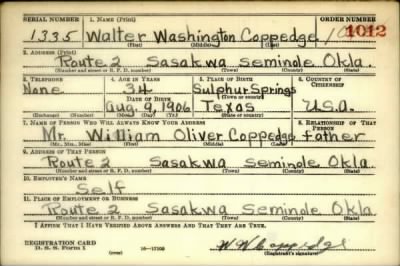 SERIAL NUMBER 1. NAME (Print) ORDER NUMBER
1335 Walter Washington Coppedge 1012
(First) (Middle) (Last)
2. ADDRESS (Print)
Route 2 Sasakwa Seminole Okla.
(Number and street or R. F. D. number) (Town) (County) (State)
3. TELEPHONE 4. AGE IN YEARS 5. PLACE OF BIRTH 6. COUNTRY OF CITIZENSHIP
None 34 Sulphur Springs
DATE OF BIRTH (Town or county)
Aug. 9, 1906 Texas U.S.A.
(Exchange) (Number) (Mo.) (Day) (Yr.) (State or country)
7. NAME OF PERSON WHO WILL ALWAYS KNOW YOUR ADDRESS 8. RELATIONSHIP OF THAT PERSON
Mr. William Oliver Coppedge father
(Mr., Mrs., Miss) (First) (Middle) (Last)
9. ADDRESS OF THAT PERSON
Route 2 Sasakwa Seminole Okla.
(Number and street or R. F. D. number) (Town) (County) (State)
10. EMPLOYER'S NAME
Self
11. PLACE OF EMPLOYMENT OR BUSINESS
Route 2 Sasakwa Seminole Okla.
(Number and street or R. F. D. number) (Town) (County) (State)
I AFFIRM THAT I HAVE VERIFIED ABOVE ANSWERS AND THAT THEY ARE TRUE.
REGISTRATION CARD
D. S. S. Form 1 16-17105 W W Coppedge
(Registrant's signature)